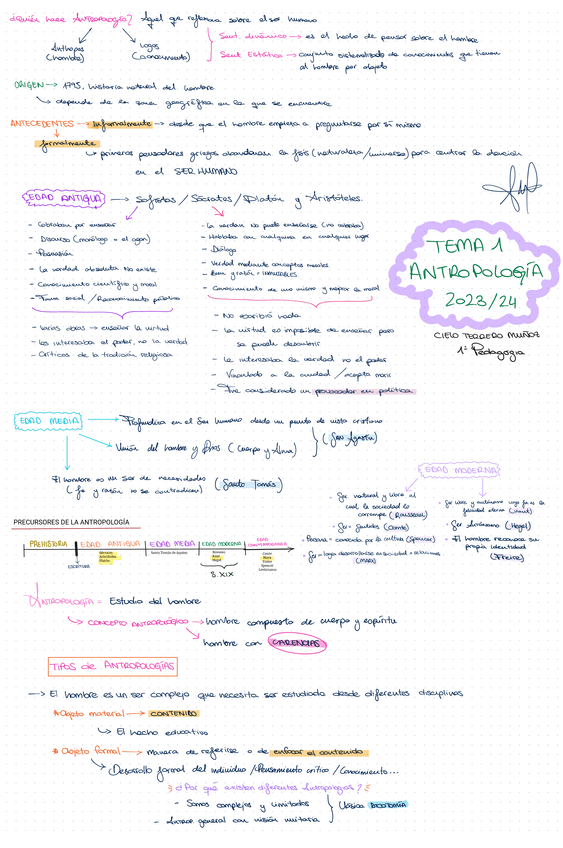 ¿Quién hace Antropología? Aquel que reflexiona sobre el ser humano
Anthopos (hombre)
Logos (conocimiento)
Sent. dinámico → es el hecho de pensar sobre el hombre
Sent Estático → conjunto sistematizado de conocimientos que tienen
al hombre por objeto
ORIGEN → 1795. Historia natural del hombre
depende de la zona geográfica en la que se encuentre
ANTECEDENTES → Informalmente → desde que el hombre empieza a preguntarse por sí mismo
formalmente
primeros pensadores griegos abandonan la fisis (naturaleza/universo) para centrar la atención
en el SER HUMANO
EDAD ANTIGUA → Sofistas / Sócrates / Platón y Aristóteles.
- Cobraban por enseñar
- Discurso (monólogo en el agon)
- Persuasión
- La verdad absoluta No existe
- Conocimiento científico y moral
- Fama social / Reconocimiento público
- Varios obras → enseñar la virtud
- Les interesaba el poder, no la verdad
- Críticos de la tradición religiosa
- La verdad no puede enseñarse
- Hablaba con cualquiera en cualquier lugar
- Diálogo
- Verdad mediante conceptos morales
- Conocimiento de uno mismo y mejorar la moral
- No escribió nada
- La virtud es imposible de enseñar pero
se puede descubrir
- Le interesaba la verdad no el poder
- Vinculado a la ciudad / acepta morir
- Fue considerado un provocador en política
TEMA 1
ANTROPOLOGÍA
2023/24
CIELO TERRERO MUÑOZ
1º Pedagogía
EDAD MEDIA → Profundiza en el Ser humano desde un punto de vista cristiano
Unión del hombre y Dios (Cuerpo y Alma)
(San Agustín)
El hombre es un ser de necesidades
(fe y razón no se contradicen)
(Santo Tomás)
EDAD MODERNA
· Ser natural y libre al
cual la sociedad lo
corrompe (Rousseau)
(Comte)
· Persona = conocida por la cultura (Spencer)
(Marx)
(Kant)
(Hegel)
· El hombre reconoce su
propia identidad
(Freire)
PRECURSORES DE LA ANTROPOLOGÍA
PREHISTORIA
EDAD ANTIGUA
EDAD MEDIA
EDAD MODERNA
EDAD CONTEMPORÁNEA
ESCRITURA
Sócrates
Aristóteles
Platón
Santo Tomás de Aquino
Rousseau
Kant
Hegel
Comte
Marx
Freire
Spencer
Levistrauss
S. XIX
ANTROPOLOGÍA = Estudio del hombre
CONCEPTO ANTROPOLÓGICO → hombre compuesto de cuerpo y espíritu
hombre con CARENCIAS
TIPOS de ANTROPOLOGÍAS
→ El hombre es un ser complejo que necesita ser estudiado desde diferentes disciplinas
* Objeto material → CONTENIDO
El hecho educativo
* Objeto formal → manera de referirse o de enfocar el contenido
Desarrollo formal del individuo / Pensamiento crítico / Conocimiento...
¿Por qué existen diferentes Antropologías?
- Somos complejos y limitados
- Antrop. general con visión unitaria
Clásica DICOTOMÍA